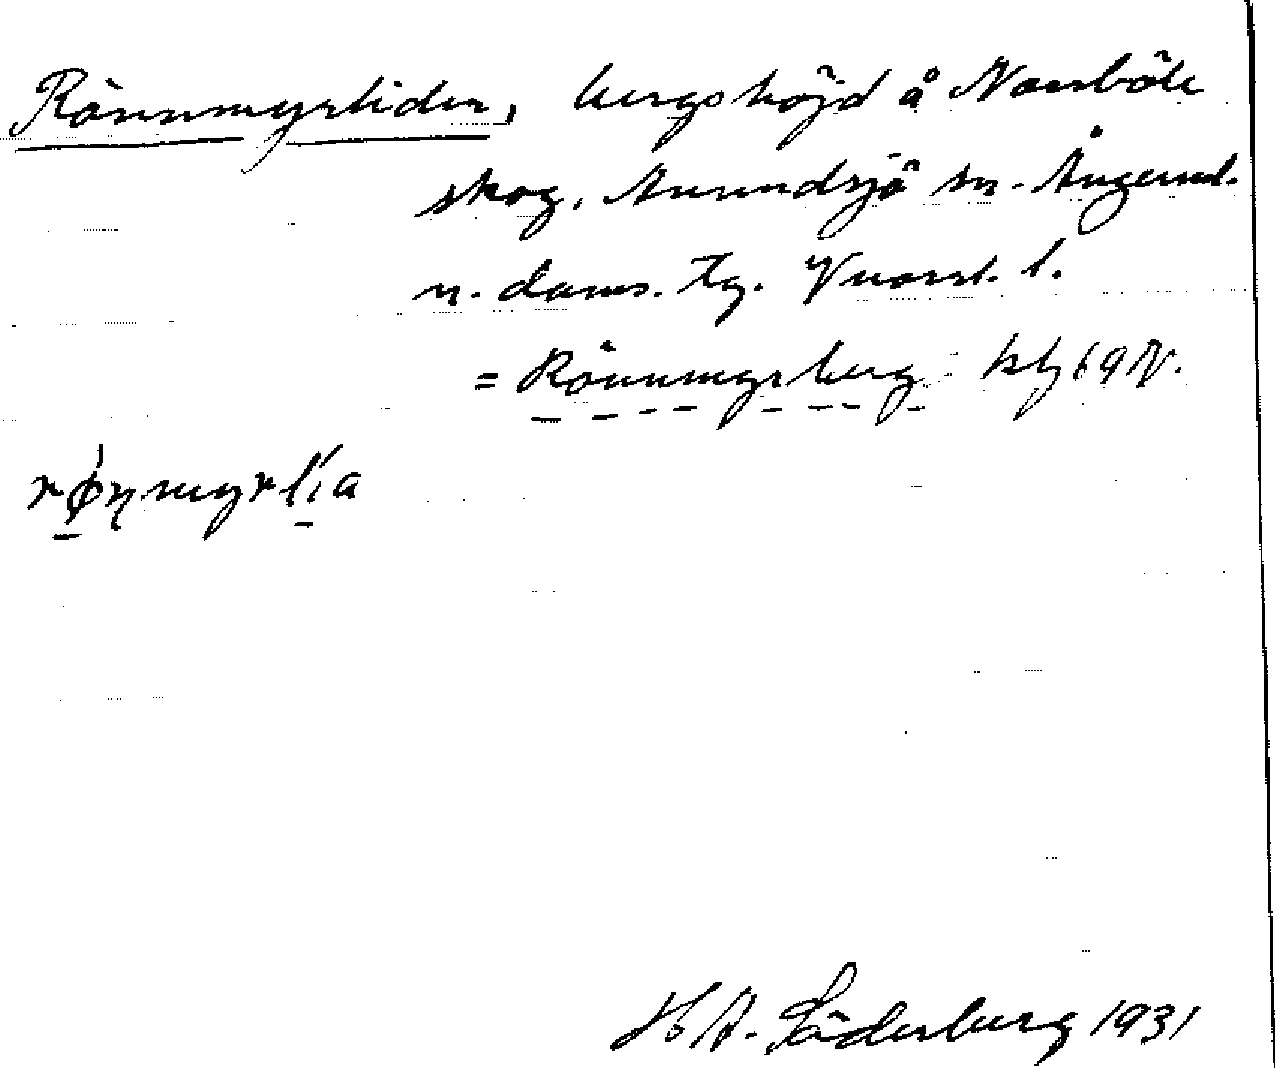 Rönnmyrliden, bergshöjd å Norrböle
skog, Anundsjö sn. Ångerml.
n. doms. tg. Vuorst. l.
= Rönnmyrberg kbl 69 N.
rønmyrlia
H A. Söderberg 1931